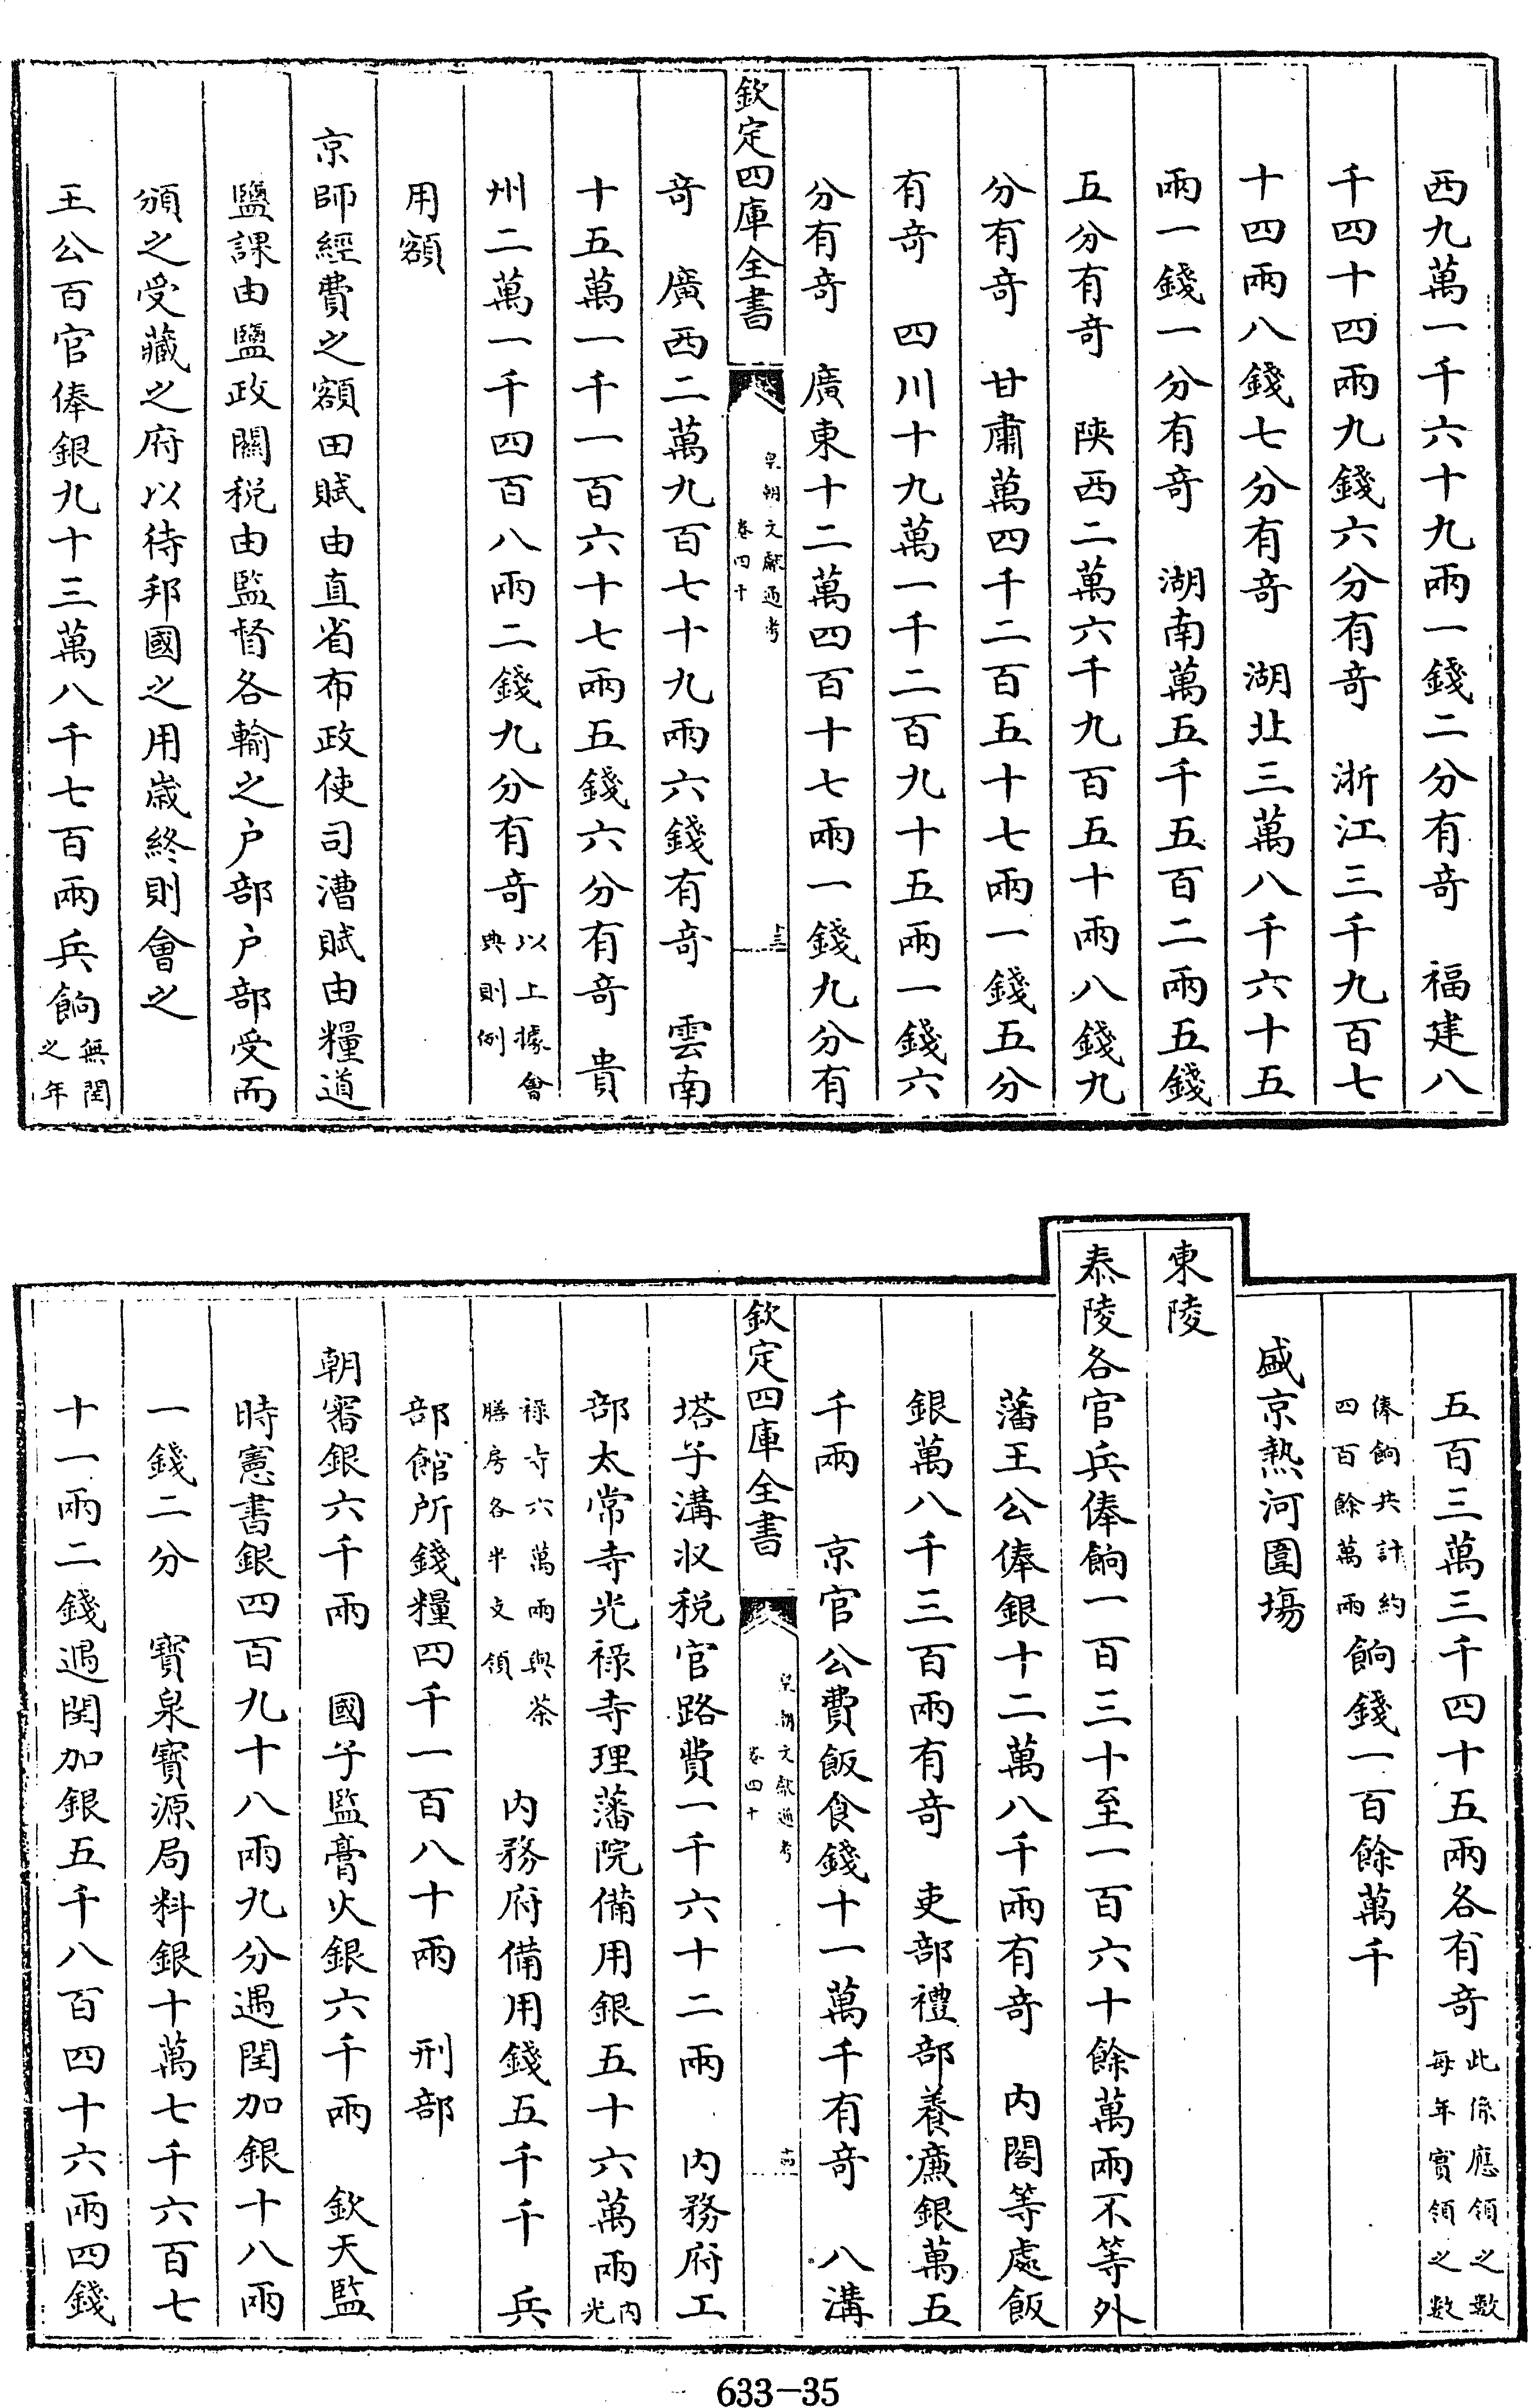 西九萬一千六十九兩一錢二分有奇　福建八
千四十四兩九錢六分有奇　浙江三千九百七
十四兩八錢七分有奇　湖北三萬八千六十五
兩一錢一分有奇　湖南萬五千五百二兩五錢
五分有奇　陝西二萬六千九百五十兩八錢九
分有奇　甘肅萬四千二百五十七兩一錢五分
有奇　四川十九萬一千二百九十五兩一錢六
分有奇　廣東十二萬四百十七兩一錢九分有
欽定四庫全書　皇朝文獻通考　卷四十　十三
奇　廣西二萬九百七十九兩六錢有奇　雲南
十五萬一千一百六十七兩五錢六分有奇　貴
州二萬一千四百八兩二錢九分有奇以上據會典則例
用額
京師經費之額田賦由直省布政使司漕賦由糧道
鹽課由鹽政關税由監督各輸之户部户部受而
頒之受藏之府以待邦國之用歲終則會之
王公百官俸銀九十三萬八千七百兩兵餉無閏之年
五百三萬三千四十五兩各有奇此係應領之數每年實領之數
俸餉共計約四百餘萬兩餉錢一百餘萬千
盛京熱河圍塲
東陵
泰陵各官兵俸餉一百三十至一百六十餘萬兩不等外
藩王公俸銀十二萬八千兩有奇　内閣等處飯
銀萬八千三百兩有奇　吏部禮部養亷銀萬五
千兩　京官公費飯食錢十一萬千有奇　八溝
欽定四庫全書　皇朝文獻通考　卷四十　十四
塔子溝收税官路費一千六十二兩　内務府工
部太常寺光祿寺理藩院備用銀五十六萬兩内光
祿寺六萬兩與茶膳房各半支領　内務府備用錢五千千　兵
部館所錢糧四千一百八十兩　刑部
朝審銀六千兩　國子監膏火銀六千兩　欽天監
時憲書銀四百九十八兩九分遇閏加銀十八兩
一錢二分　寶泉寶源局料銀十萬七千六百七
十一兩二錢遇閏加銀五千八百四十六兩四錢
633-35